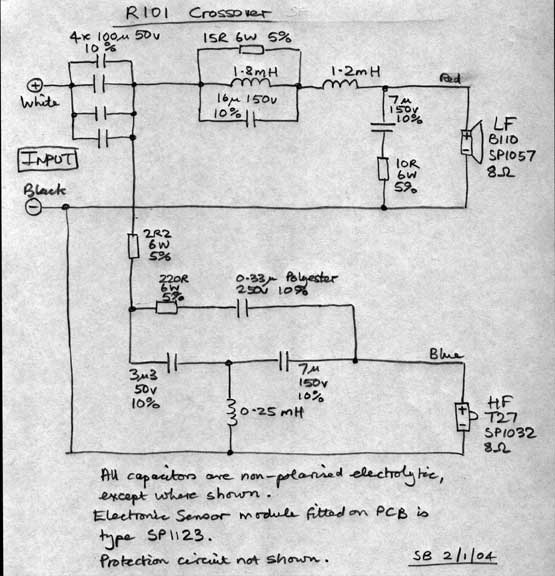 R101 Crossover
4x 100μ 50v
10%
15R 6W 5%
1.8mH
16μ 150v
10%
1.2mH
Red
7μ
150v
10%
10R
6W
5%
LF
B110
SP1057
8Ω
+
-
+
White
INPUT
Black
-
2R2
6W
5%
220R
6W
5%
0.33μ Polyester
250v 10%
3μ3
50v
10%
7μ
150v
10%
0.25mH
Blue
+
-
HF
T27
SP1032
8Ω
All capacitors are non-polarised electrolytic,
except where shown.
Electronic Sensor module fitted on PCB is
type SP1123.
Protection circuit not shown.
SB 2/1/04